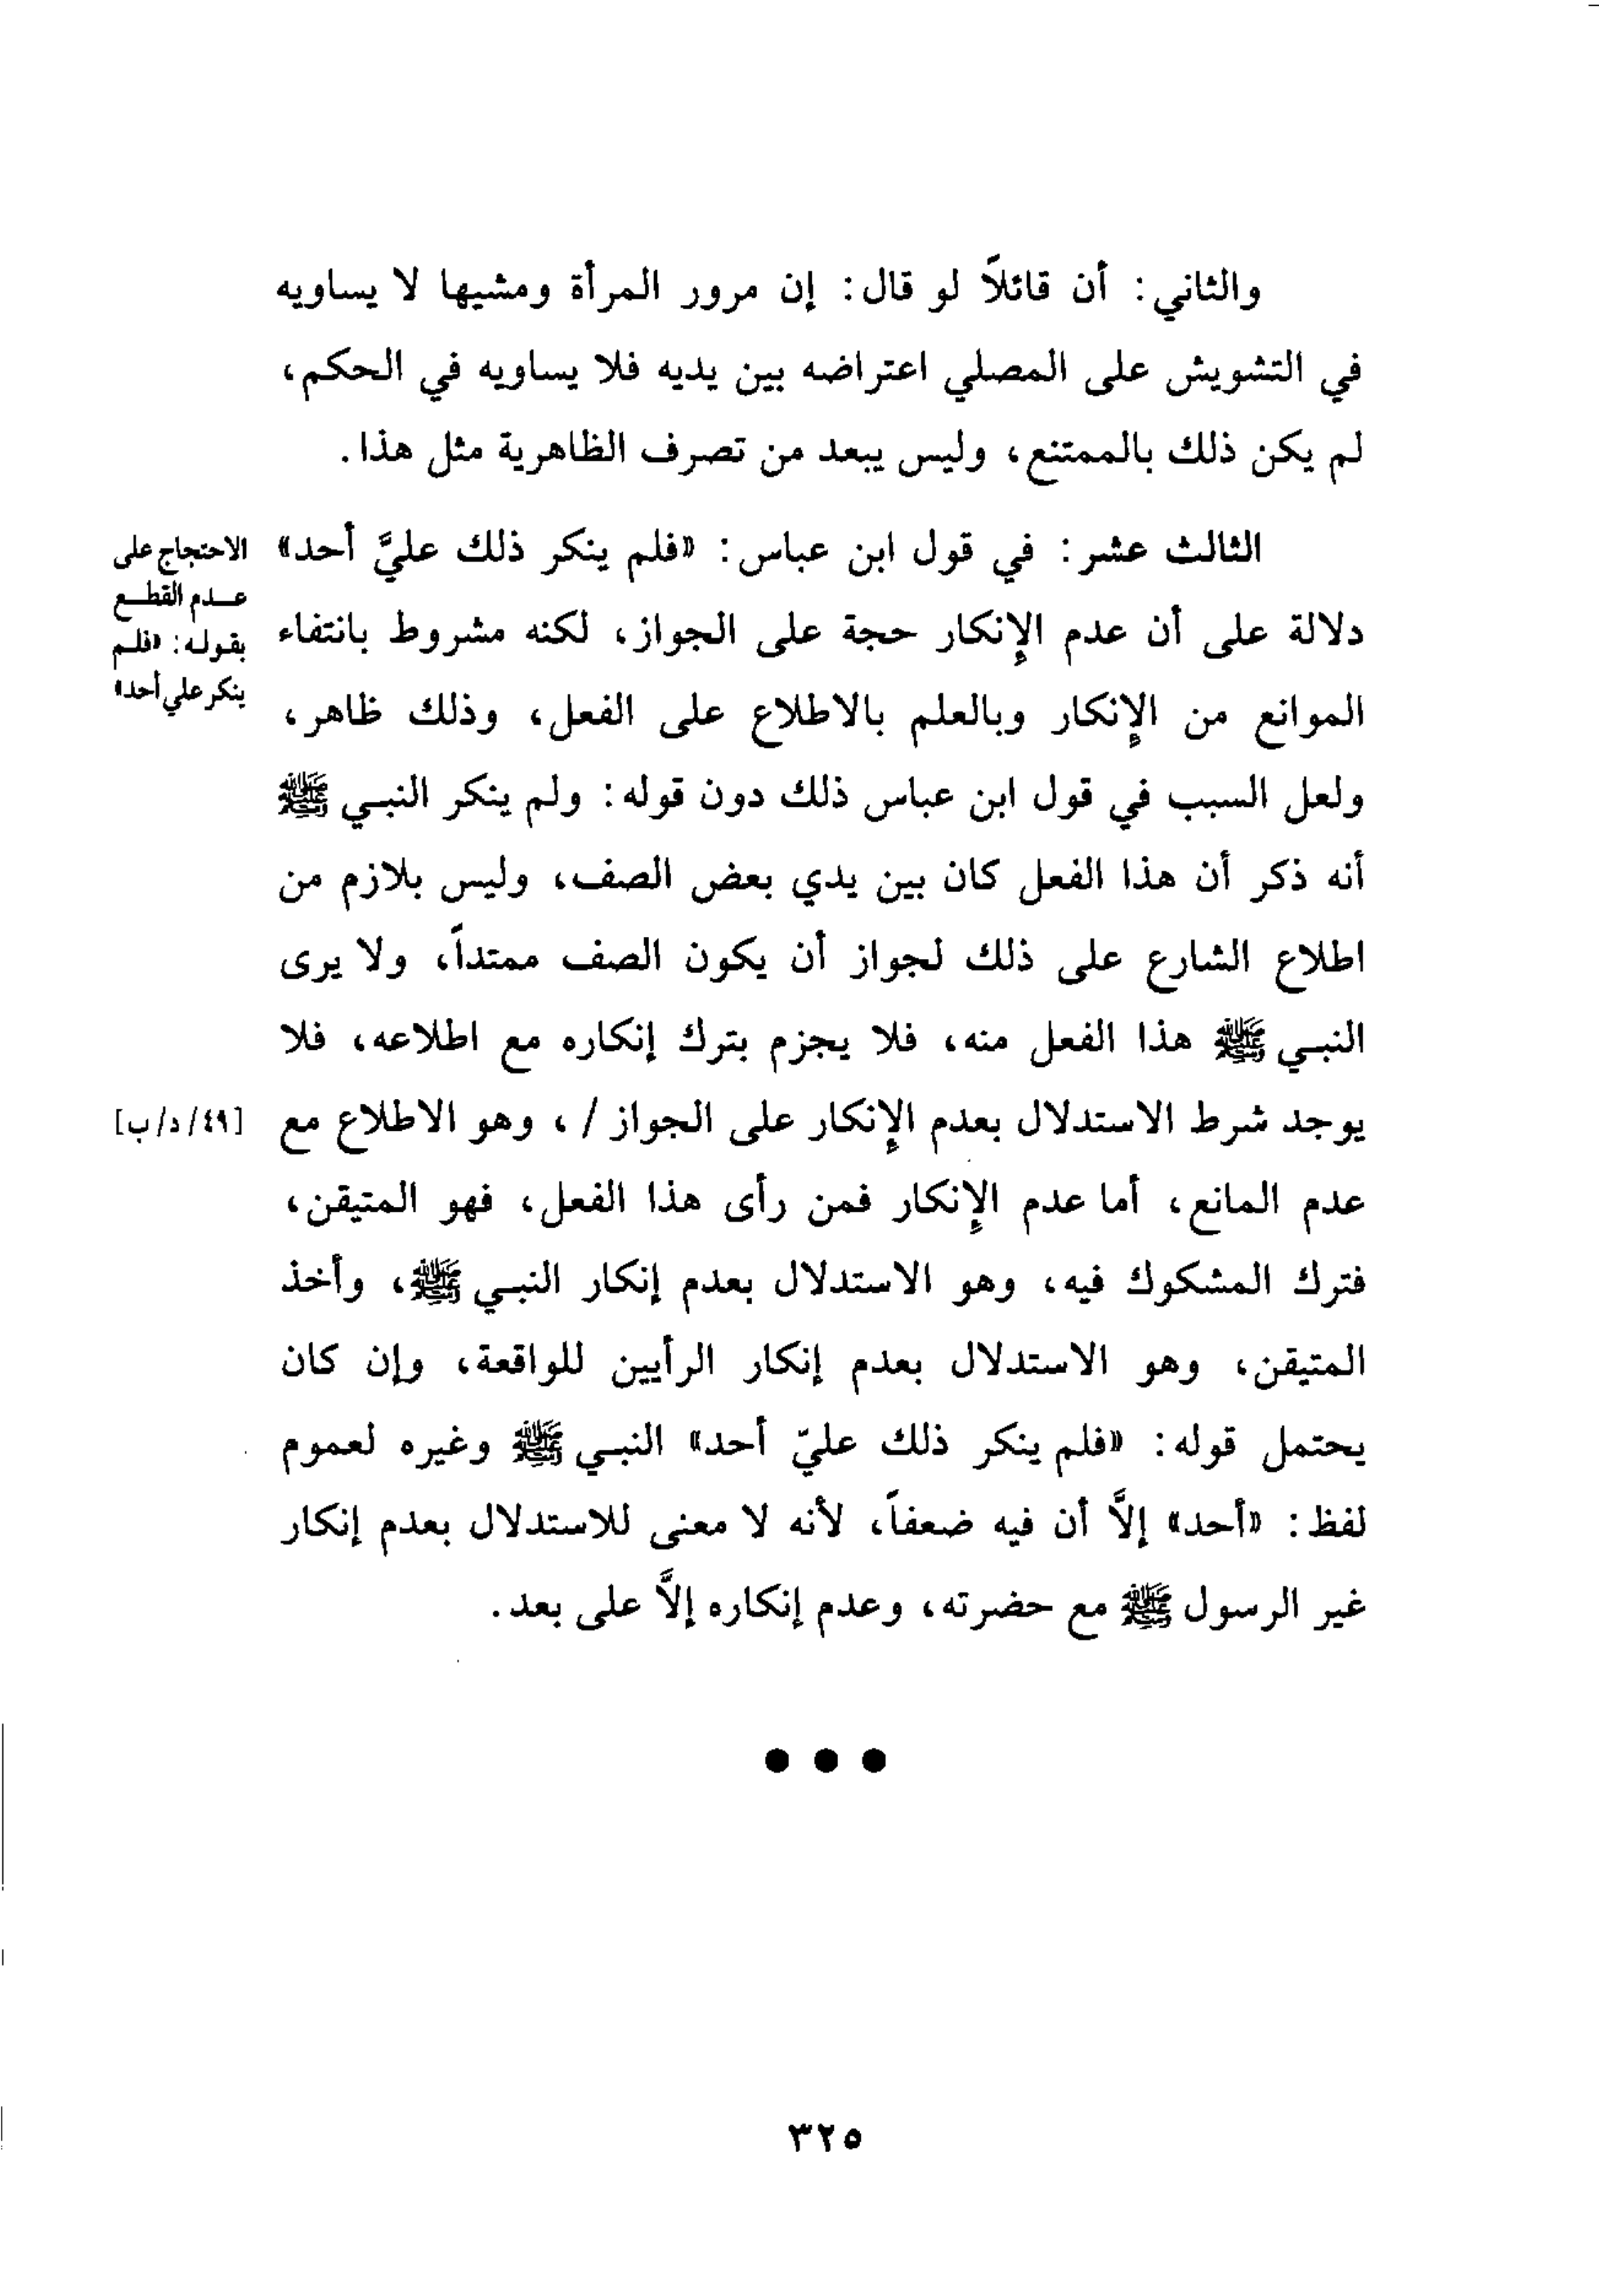 والثاني: أن قائلاً لو قال: إن مرور المرأة ومشيها لا يساويه
في التشويش على المصلي اعتراضه بين يديه فلا يساويه في الحكم،
لم يكن ذلك بالممتنع، وليس يبعد من تصرف الظاهرية مثل هذا.
الثالث عشر: في قول ابن عباس: «فلم ينكر ذلك عليَّ أحد»
دلالة على أن عدم الإنكار حجة على الجواز، لكنه مشروط بانتفاء
الموانع من الإنكار وبالعلم بالاطلاع على الفعل، وذلك ظاهر،
ولعل السبب في قول ابن عباس ذلك دون قوله: ولم ينكر النبي ﷺ
أنه ذكر أن هذا الفعل كان بين يدي بعض الصف، وليس بلازم من
اطلاع الشارع على ذلك لجواز أن يكون الصف ممتداً، ولا يرى
النبي ﷺ هذا الفعل منه، فلا يجزم بترك إنكاره مع اطلاعه، فلا
يوجد شرط الاستدلال بعدم الإنكار على الجواز /، وهو الاطلاع مع
عدم المانع، أما عدم الإنكار فمن رأى هذا الفعل، فهو المتيقن،
فترك المشكوك فيه، وهو الاستدلال بعدم إنكار النبي ﷺ، وأخذ
المتيقن، وهو الاستدلال بعدم إنكار الرأيين للواقعة، وإن كان
يحتمل قوله: «فلم ينكر ذلك عليّ أحد» النبي ﷺ وغيره لعموم
لفظ: «أحد» إلاَّ أن فيه ضعفاً، لأنه لا معنى للاستدلال بعدم إنكار
غير الرسول ﷺ مع حضرته، وعدم إنكاره إلاَّ على بعد.
الاحتجاج على
عدم القطع
بقوله: «فلم
ينكر علي أحد»
[٤٩/د/ب]
٣٢٥